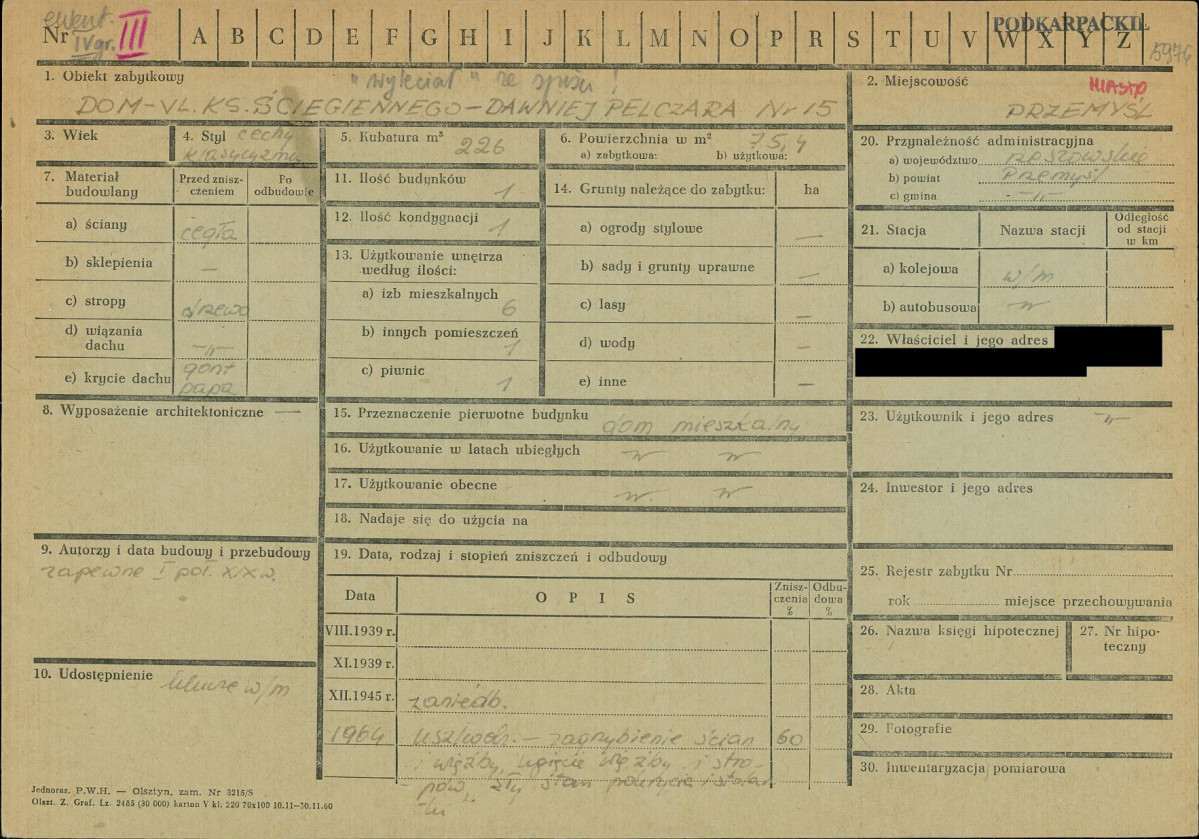 ewent. IV gr. III
Nr A B C D E F G H I J K L M N O P R S T U V W X Y Z
PODKARPACKIE
5976
"wyleciał" ze spisu!
1. Obiekt zabytkowy
DOM - UL. KS. ŚCIEGIENNEGO - DAWNIEJ PELCZARA Nr 15
2. Miejscowość MIASTO
PRZEMYŚL
3. Wiek
4. Styl cechy
klasycyzmu
5. Kubatura m³ 226
6. Powierzchnia w m² 75,4
a) zabytkowa: b) użytkowa:
7. Materiał budowlany
Przed zniszczeniem
Po odbudowie
a) ściany cegła
b) sklepienia —
c) stropy drewo
d) wiązania dachu -„-
e) krycie dachu gont
papa
8. Wyposażenie architektoniczne —
9. Autorzy i data budowy i przebudowy
zapewne I poł. XIX w.
10. Udostępnienie
klucze w/m
11. Ilość budynków 1
12. Ilość kondygnacji 1
13. Użytkowanie wnętrza
według ilości:
a) izb mieszkalnych 6
b) innych pomieszczeń 1
c) piwnic 1
14. Grunty należące do zabytku: ha
a) ogrody stylowe —
b) sady i grunty uprawne —
c) lasy —
d) wody —
e) inne —
15. Przeznaczenie pierwotne budynku dom mieszkalny
16. Użytkowanie w latach ubiegłych -„- -„-
17. Użytkowanie obecne -„- -„-
18. Nadaje się do użycia na
19. Data, rodzaj i stopień zniszczeń i odbudowy
Data OPIS Zniszczenia % Odbudowa %
VIII.1939 r.
XI.1939 r.
XII.1945 r. zaniedb.
1964 uszkodz. — zagrzybienie ścian 60
i więźby, ugięcie więźby i stro-
pów, zły stan pokrycia i stolar
ki
20. Przynależność administracyjna
a) województwo rzeszowskie
b) powiat Przemyśl
c) gmina -„-
21. Stacja Nazwa stacji Odległość od stacji w km
a) kolejowa w/m
b) autobusowa -„-
22. Właściciel i jego adres
23. Użytkownik i jego adres -„-
24. Inwestor i jego adres
25. Rejestr zabytku Nr
rok miejsce przechowywania
26. Nazwa księgi hipotecznej
27. Nr hipo-
teczny
28. Akta
29. Fotografie
30. Inwentaryzacja pomiarowa
Jednoraz. P.W.H. — Olsztyn, zam. Nr 3215/S
Olszt. Z. Graf. Lz. 2485 (30 000) karton V kl. 220 70x100 10.11—30.11.60